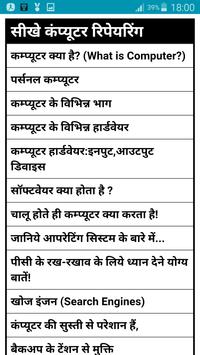 39% 18:00
सीखे कंप्यूटर रिपेयरिंग
कम्प्यूटर क्या है? (What is Computer?)
पर्सनल कम्प्यूटर
कम्प्यूटर के विभिन्न भाग
कम्प्यूटर के विभिन्न हार्डवेयर
कम्प्यूटर हार्डवेयर:इनपुट,आउटपुट
डिवाइस
सॉफ्टवेयर क्या होता है ?
चालू होते ही कम्प्यूटर क्या करता है!
जानिये आपरेटिंग सिस्टम के बारे में...
पीसी के रख-रखाव के लिये ध्यान देने योग्य
बातें!
खोज इंजन (Search Engines)
कंप्यूटर की सुस्ती से परेशान हैं,
बैकअप के टेंशन से मुक्ति